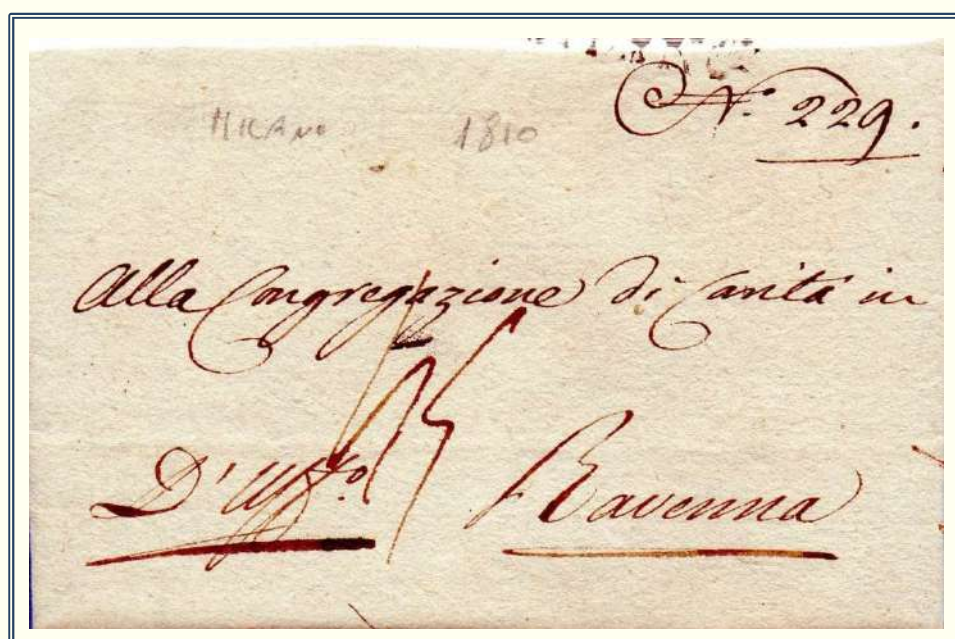 N.º 229.
MILANO 1810
Alla Congregazione di Carità in
D'Uff.to Ravenna